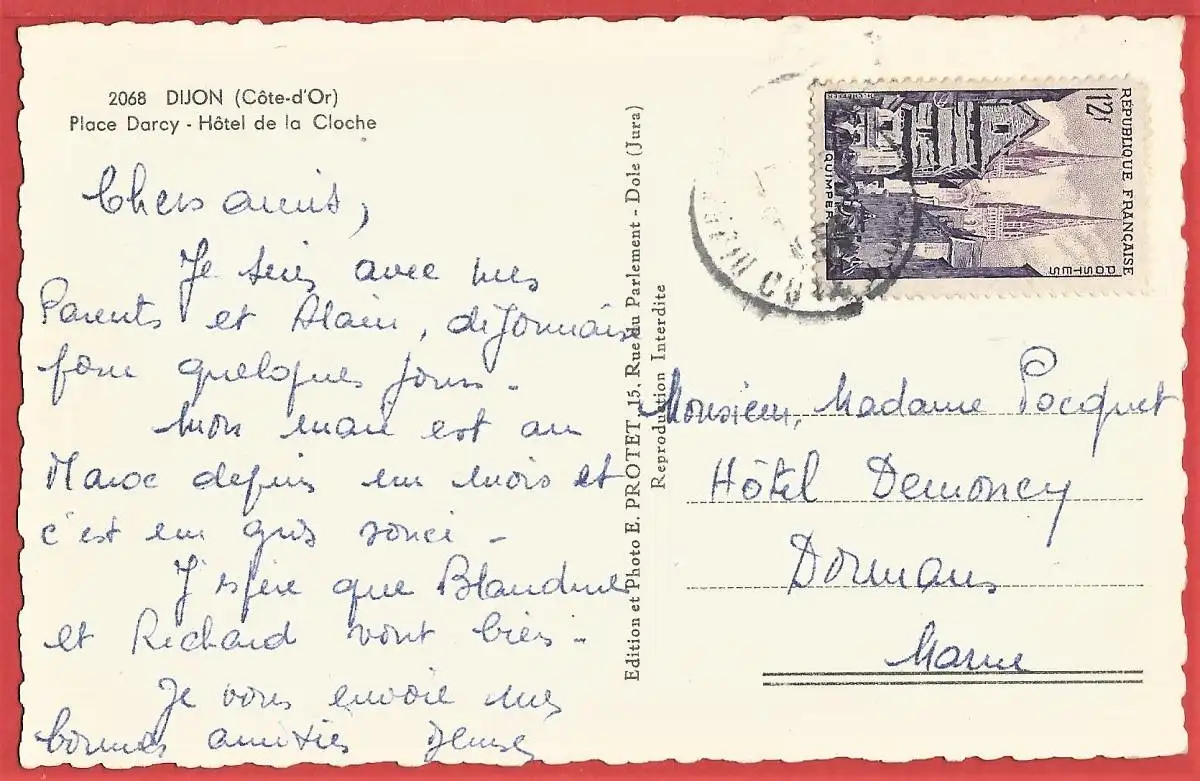 2068 DIJON (Côte-d'Or)
Place Darcy - Hôtel de la Cloche
Chers amis,
Je suis avec mes
Parents et Alain, dijonnaise
pour quelques jours.
Mon mari est au
Maroc depuis un mois et
c'est un gros souci -
J'espère que Blandine
et Richard vont bien -
Je vous envoie mes
bonnes amitiés Denise
Edition et Photo E. PROTET, 15, Rue du Parlement - Dole (Jura)
Reproduction Interdite
RÉPUBLIQUE FRANÇAISE
12f
POSTES
QUIMPER
Monsieur, Madame Pocquet
Hôtel Demoncy
Dormans
Marne